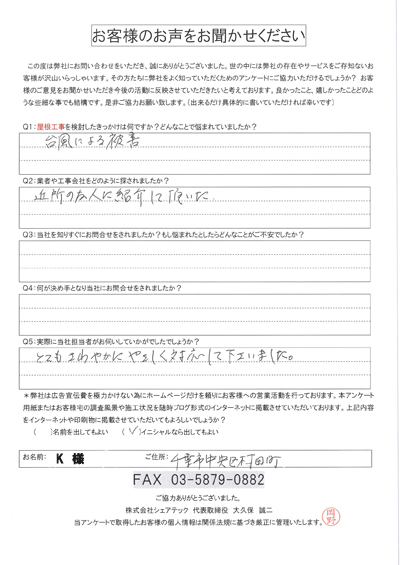 お客様のお声をお聞かせください
この度は弊社にお問い合わせをいただき、誠にありがとうございました。世の中には弊社の存在やサービスをご存知ないお
客様が沢山いらっしゃいます。その方たちに弊社をよく知っていただくためのアンケートにご協力いただけるでしょうか？ お客
様のご意見をお聞かせいただき今後の活動に反映させていただきたいと考えております。良かったこと、嬉しかったことどのよ
うな些細な事でも結構です。是非ご協力お願い致します。（出来るだけ具体的に書いていただければ幸いです）
Q1：屋根工事を検討したきっかけは何ですか？どんなことで悩まれていましたか？
台風による被害
Q2：業者や工事会社をどのように探されましたか？
近所の友人に紹介して頂いた
Q3：当社を知りすぐにお問合せをされましたか？もし悩まれたとしたらどんなことがご不安でしたか？
Q4：何が決め手となり当社にお問合せをされましたか？
Q5：実際に当社担当者がお伺いしていかがでしたでしょうか？
とてもさわやかにやさしく対応して下さいました。
＊弊社は広告宣伝費を極力かけない為にホームページだけを頼りにお客様への営業活動を行っております。本アンケート
用紙またはお客様宅の調査風景や施工状況を随時ブログ形式のインターネットに掲載させていただいております。上記内容
をインターネットや印刷物に掲載させていただいてもよろしいでしょうか？
（　）名前を出してもよい　（✓）イニシャルなら出してもよい
お名前： K 様　ご住所： 千葉市中央区村田町
FAX 03-5879-0882
ご協力ありがとうございました。
株式会社シェアテック 代表取締役 大久保 誠二
当アンケートで取得したお客様の個人情報は関係法規に基づき厳正に管理いたします。
岡野